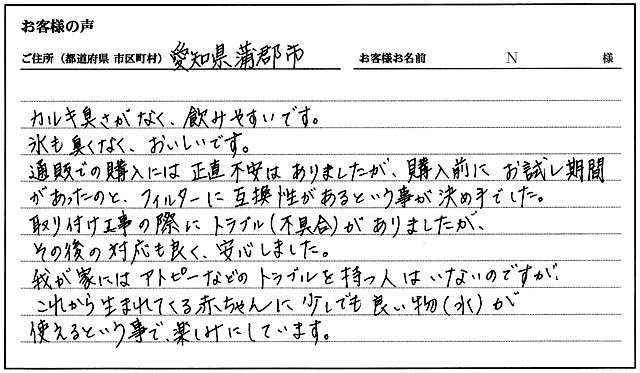 お客様の声
ご住所（都道府県 市区町村） 愛知県蒲郡市 お客様お名前 N 様
カルキ臭さがなく、飲みやすいです。
氷も臭くなく、おいしいです。
通販での購入には正直不安はありましたが、購入前にお試し期間
があったのと、フィルターに互換性があるという事が決め手でした。
取り付け工事の際にトラブル(不具合)がありましたが、
その後の対応も良く、安心しました。
我が家にはアトピーなどのトラブルを持つ人はいないのですが、
これから生まれてくる赤ちゃんに少しでも良い物(水)が
使えるという事で、楽しみにしています。